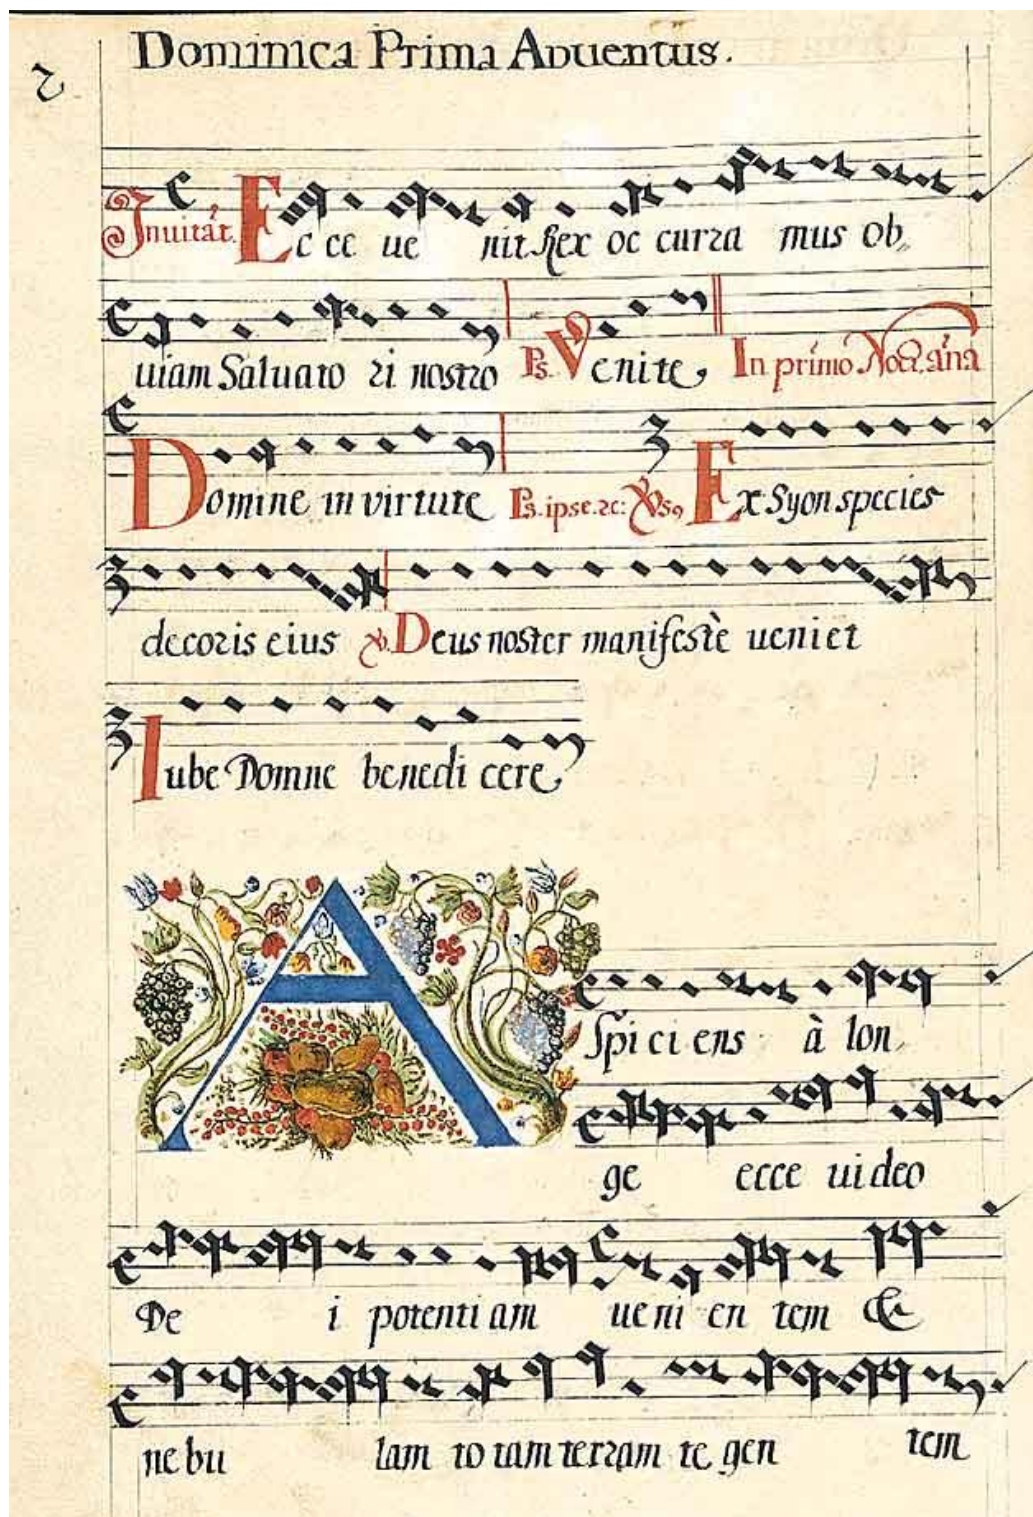 2
Dominica Prima Aduentus.
Inuitat. Ec ce ue nit Rex oc curra mus ob
uiam Saluato ri nostro Ps. Venite, In primo Noct. aña
Domine in virtute Ps. ipse. zc: Vs9 Ex Syon species
decoris eius Deus noster manifestè ueniet
Iube Domne benedi cere
Aspici ens à lon
ge ecce ui deo
De i potenti am ue ni en tem &
ne bu lam to tam terram te gen tem